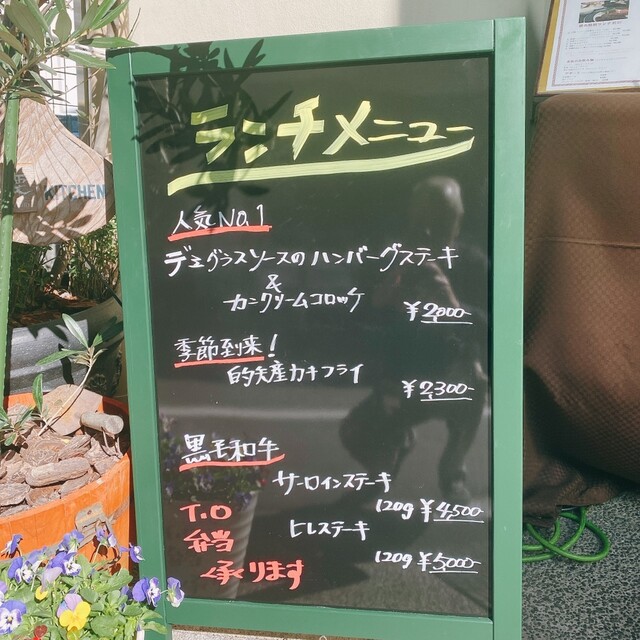 ランチメニュー
人気No.1
デミグラスソースのハンバーグステーキ
&
カニクリームコロッケ
¥2,000-
季節到来!
的矢産カキフライ
¥2,300-
黒毛和牛
サーロインステーキ
120g ¥4,500-
ヒレステーキ
120g ¥5,000-
T.O
弁当
承ります
KITCHEN